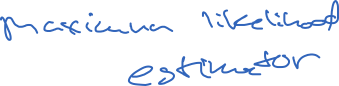 maximum likelihood
estimator